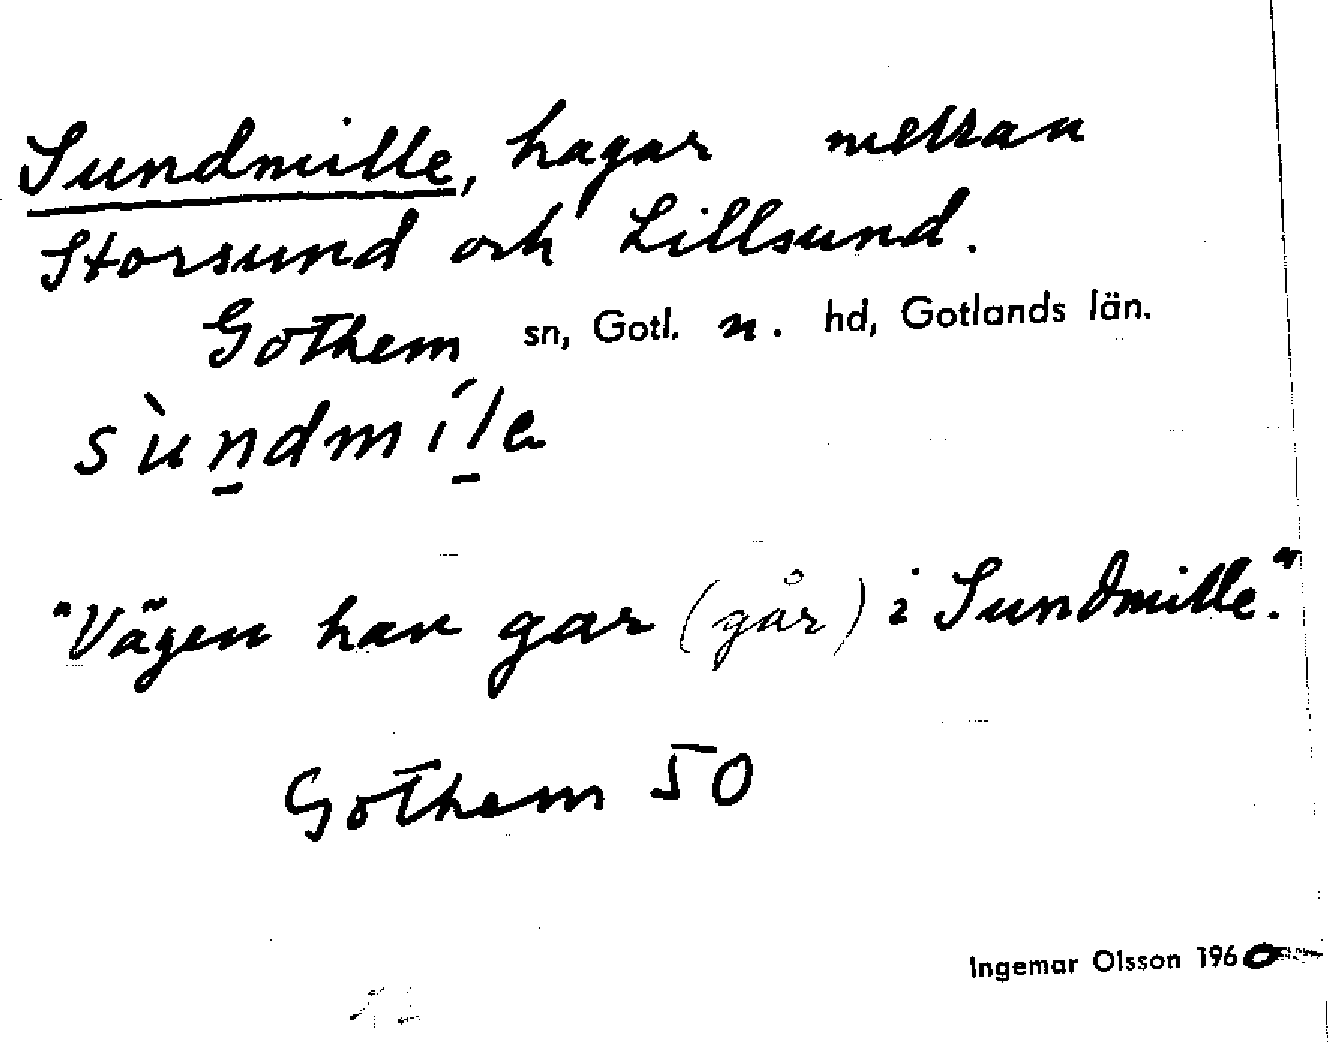 Sundmille, hagar mellan
Storsund och Lillsund.
Gothem sn, Gotl. n. hd, Gotlands län.
sùn̲dmíl̲e
"Vägen han gar (går) i Sundmille."
Gothem 50
Ingemar Olsson 1960